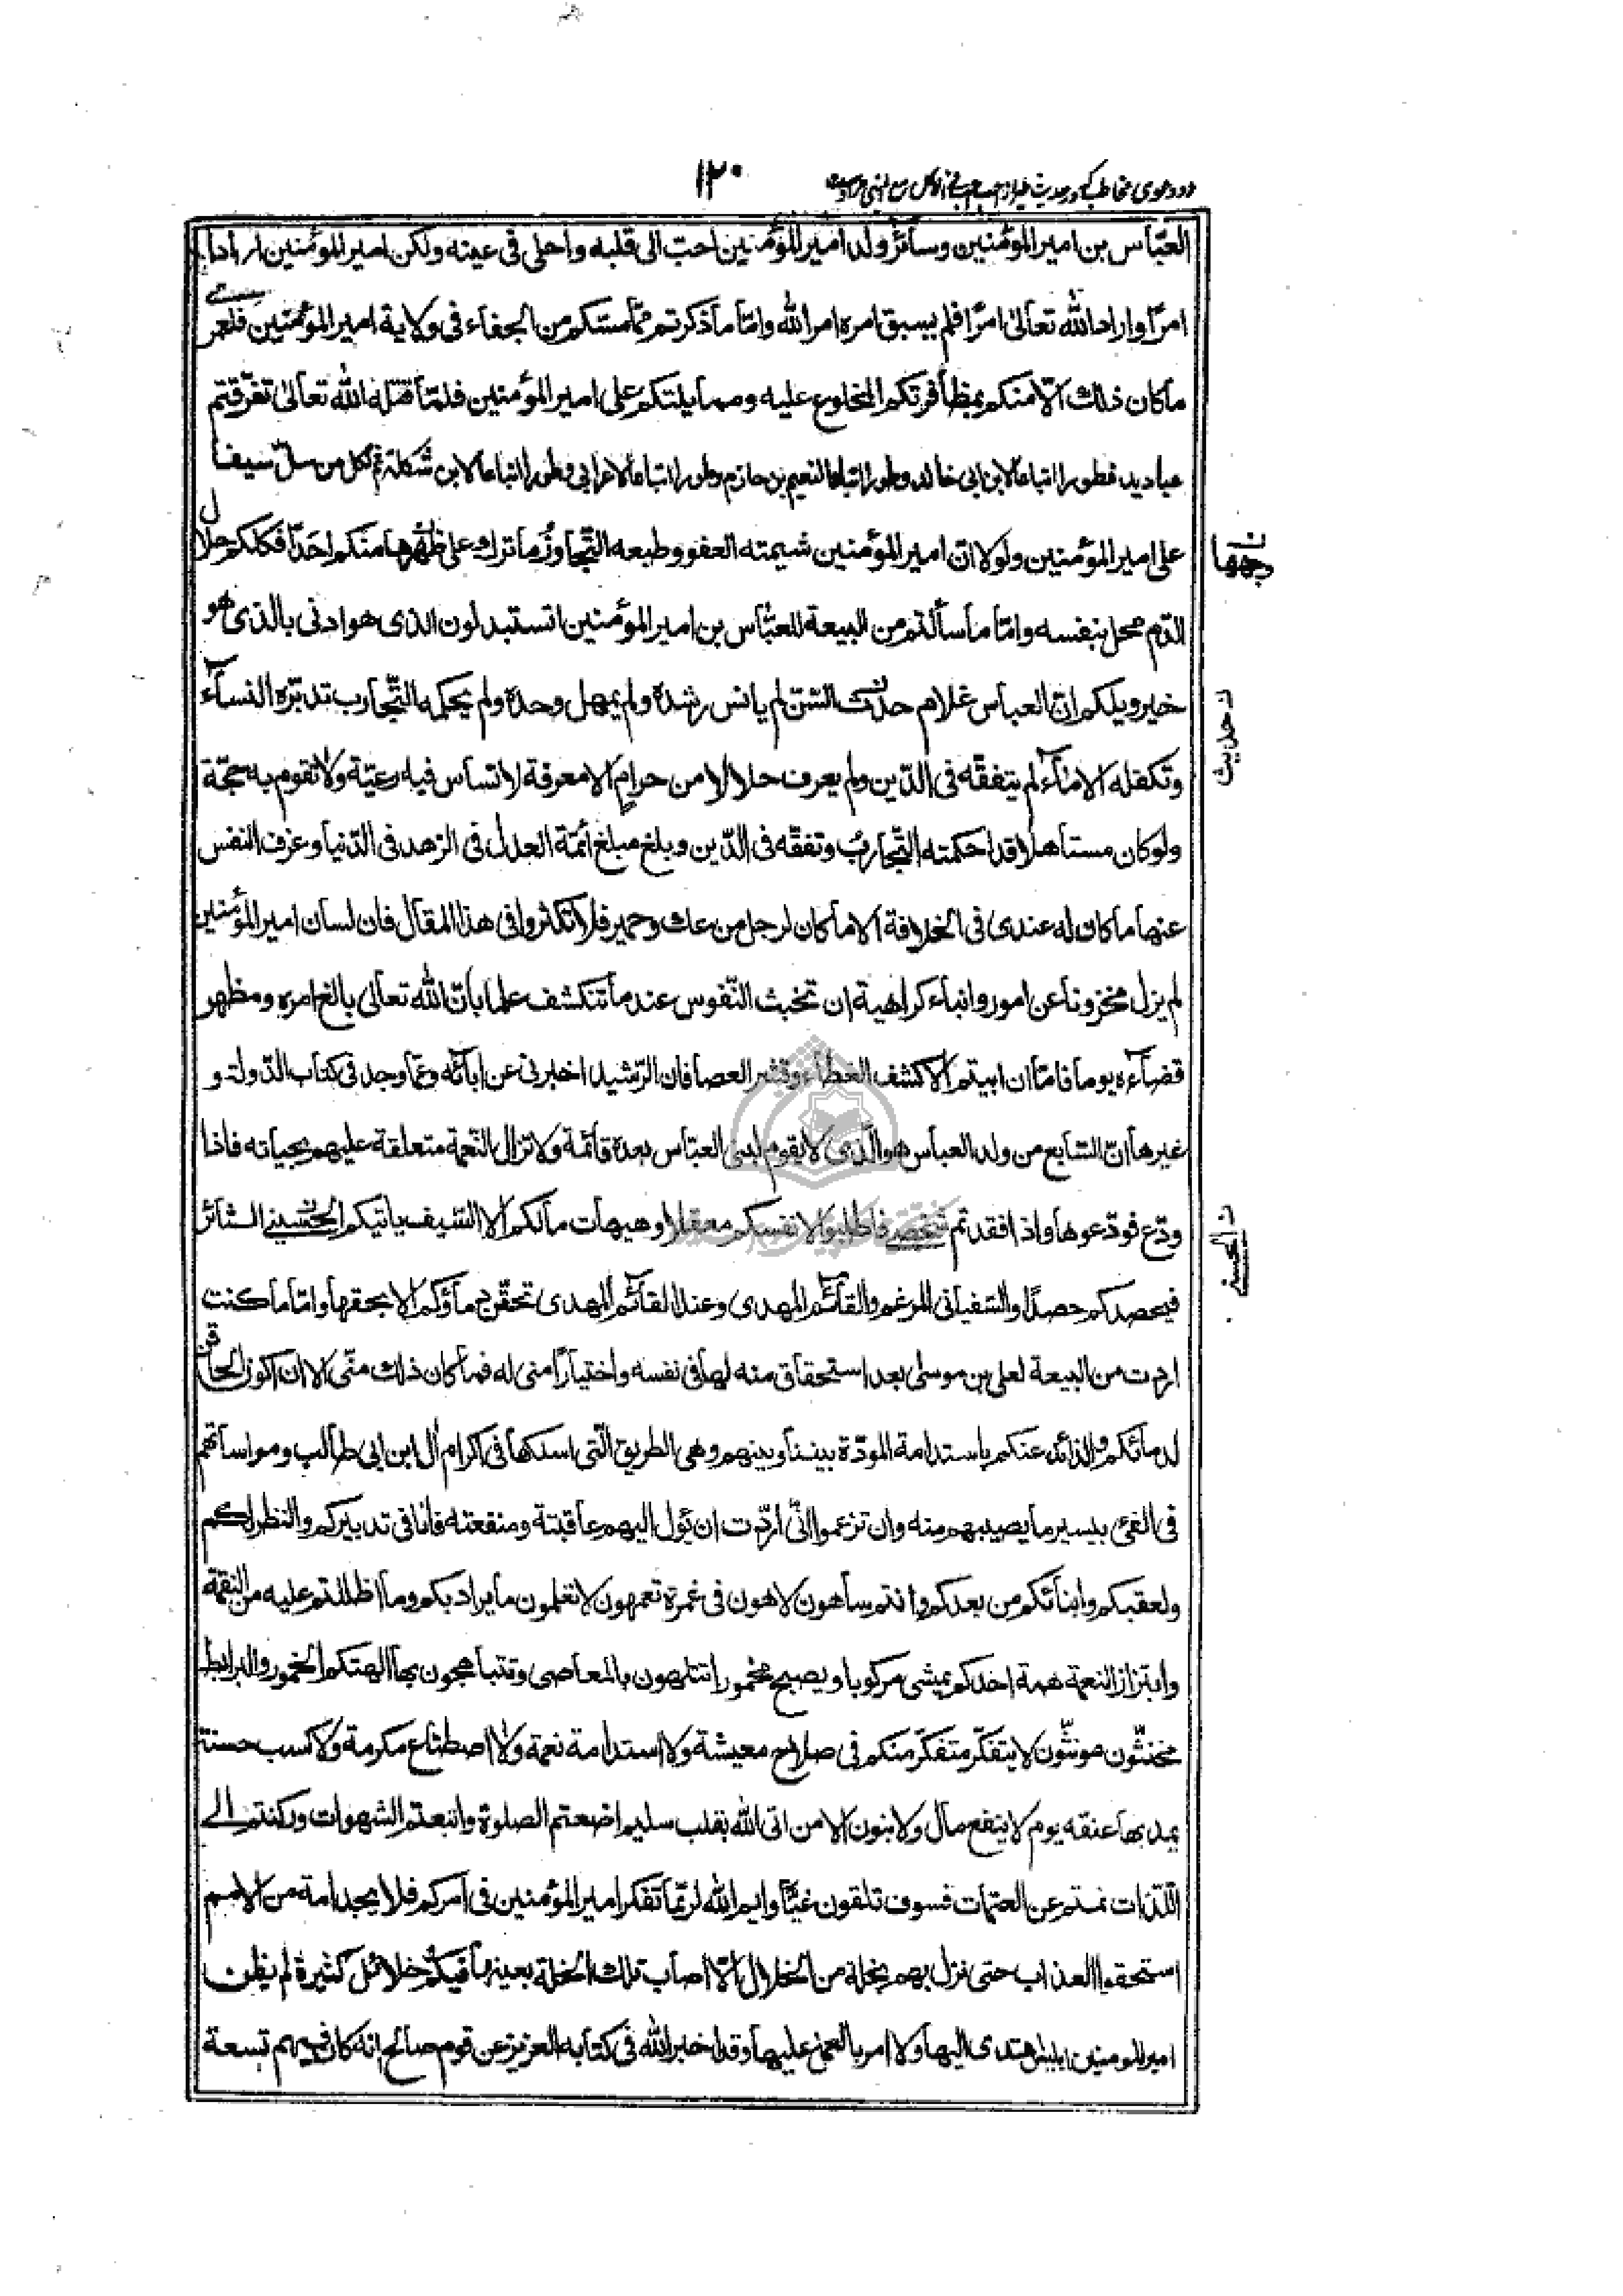 ١٢٠
العبّاس بن امير المؤمنين وسائر ولد امير المؤمنين احبّ الى قلبه واحلى فى عينه ولكن امير المؤمنين اراد
امرًا واراد الله تعالىٰ امرًا فلم يسبق امره امر الله وامّا ما ذكرتم ممّا مسّكم من الجفاء فى ولاية امير المؤمنين فلعمرى
ما كان ذلك الّا منكم بمظافرتكم المخلوع عليه وممايلتكم على امير المؤمنين فلمّا قتله الله تعالىٰ تفرّقتم
عباديد فطورا اتباعا لابن ابى خالد وطورا اتباعا لنعيم بن حازم وطورا اتباعا لاعرابى وطورا اتباعا لابن شكلة ثم كل من سلّ سيفا
على امير المؤمنين ولولا انّ امير المؤمنين شيمته العفو وطبعه التّجاوز ما ترك على ظهرها منكم احدًا فكلكم حلال
وجهها ن
الدّم محل بنفسه وامّا ما سألتم من البيعة للعبّاس بن امير المؤمنين اتستبدلون الذى هو ادنى بالذى هو
خير ويلكم انّ العباس غلام حدث السّنّ لم يانس رشده ولم يمهل وحده ولم يحكمه التّجارب تدبّره النساء
ن حديث
وتكفله الاماء لم يتفقّه فى الدّين ولم يعرف حلالا من حرام الا معرفة لا تساس فيه رعيّة ولا تقوم به حجّة
ولو كان مستأهلا قد احكمته التّجارب وتفقّه فى الدّين وبلغ مبلغ أئمّة العدل فى الزهد فى الدّنيا وعزف النفس
عنها ما كان له عندى فى الخلافة الا ما كان لرجل من عك وحمير فلا تكثروا فى هذا المقال فان لسان امير المؤمنين
لم يزل مخزونا عن امور وانباء كراهية ان تخبث النّفوس عند ما تنكشف علما بانّ الله تعالىٰ بالغ امره ومظهر
قضاءه يوما فامّا ان ابيتم الا كشف الغطاء وقشر العصا فان الرّشيد اخبرنى عن اٰبائه وعمّا وجد فى كتاب الدّولة و
غيرها انّ السّابع من ولد العباس هو الّذى لا تقوم لبنى العبّاس بعده قائمة ولا تزال النّعمة متعلقة عليهم بحياته فاذا
ودّع فودّعوها واذا فقدتم شخصى فاطلبوا لانفسكم معقلا وهيهات ما لكم الا السّيف ياتيكم الحسينى الثائر
ن الحسنى
فيحصدكم حصدًا والسّفيانى المرغم والقائم المهدى وعند القائم المهدى تحقن دماؤكم الا بحقها وامّا ما كنت
اردت من البيعة لعلى بن موسىٰ بعد استحقاق منه لها فى نفسه واختيارًا منى له فما كان ذلك منّى الا ان اكون الحاقن
لدمائكم والذائد عنكم باستدامة المودّة بيننا وبينهم وهى الطريق الّتى اسلكها فى اكرام اٰل ابن ابى طالب ومواساتهم
فى الفئ بيسير ما يصيبهم منه وان تزعموا انّى اردت ان يئول اليهم عاقبتة ومنفعته فانا فى تدبيركم والنظر لكم
ولعقبكم وابنائكم من بعدكم وانتم ساهون لاهون فى غمرة تعمهون لا تعلمون ما يراد بكم وما اظللتم عليه من النقمة
وابتزاز النعمة همة احدكم يمشى مركوبا ويصبح مخمورا تتلهون بالمعاصى وتتباهجون بها اٰلهتكم الخمور والبرابط
مخنّثون مونثّون لا يتفكّر متفكّر منكم فى صلاح معيشة ولا استدامة نعمة ولا اصطناع مكرمة ولا كسب حسنة
يمد بها عنقه يوم لا ينفع مال ولا بنون الا من اتى الله بقلب سليم اضعتم الصلوة واتبعتم الشهوات وركنتم الى
اللّذات نمتم عن العتمات فسوف تلقون غيًّا وايم الله لربّما تفكر امير المؤمنين فى امركم فلا يجد امة من الامم
استحقوا العذاب حتى نزل بهم بخلة من الخلال الّا اصاب تلك الخلة بعينها فيكم خلائل كثيرة لم يظن
امير المومنين ابليس هتدى اليها ولا امر بالعمل عليها وقد اخبر الله فى كتابه العزيز عن قوم صالح انه كان فيهم تسعة